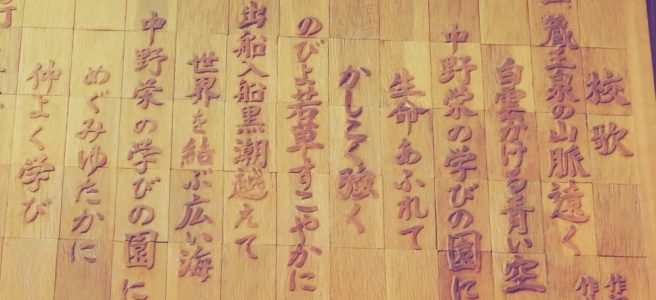 校歌
作
作
蔵王泉の山脈遠く
白雲かける青い空
中野栄の学びの園に
生命あふれて
かしこく強く
のびよ若草すこやかに
出船入船黒潮越えて
世界を結ぶ広い海
中野栄の学びの園に
めぐみゆたかに
仲よく学び